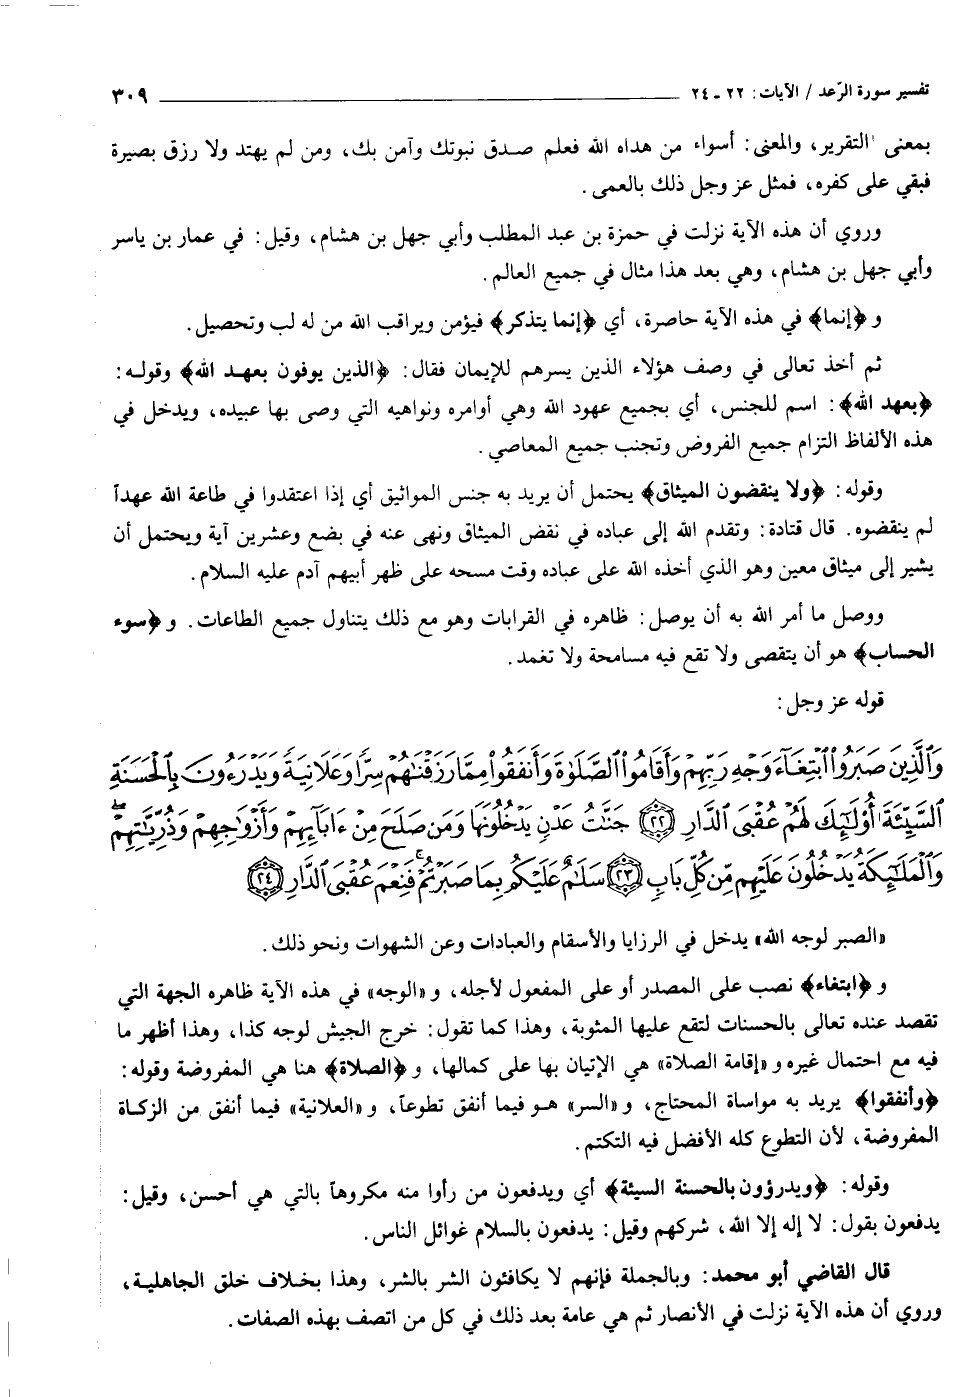 تفسير سورة الرّعد / الآيات: ٢٢ ـ ٢٤ ٣٠٩
بمعنى التقرير، والمعنى: أسواء من هداه الله فعلم صدق نبوتك وآمن بك، ومن لم يهتد ولا رزق بصيرة
فبقي على كفره، فمثل عز وجل ذلك بالعمى.
وروي أن هذه الآية نزلت في حمزة بن عبد المطلب وأبي جهل بن هشام، وقيل: في عمار بن ياسر
وأبي جهل بن هشام، وهي بعد هذا مثال في جميع العالم.
و ﴿إنما﴾ في هذه الآية حاصرة، أي ﴿إنما يتذكر﴾ فيؤمن ويراقب الله من له لب وتحصيل.
ثم أخذ تعالى في وصف هؤلاء الذين يسرهم للإيمان فقال: ﴿الذين يوفون بعهد الله﴾ وقوله:
﴿بعهد الله﴾: اسم للجنس، أي بجميع عهود الله وهي أوامره ونواهيه التي وصى بها عبيده، ويدخل في
هذه الألفاظ التزام جميع الفروض وتجنب جميع المعاصي.
وقوله: ﴿ولا ينقضون الميثاق﴾ يحتمل أن يريد به جنس المواثيق أي إذا اعتقدوا في طاعة الله عهداً
لم ينقضوه. قال قتادة: وتقدم الله إلى عباده في نقض الميثاق ونهى عنه في بضع وعشرين آية ويحتمل أن
يشير إلى ميثاق معين وهو الذي أخذه الله على عباده وقت مسحه على ظهر أبيهم آدم عليه السلام.
ووصل ما أمر الله به أن يوصل: ظاهره في القرابات وهو مع ذلك يتناول جميع الطاعات. و ﴿سوء
الحساب﴾ هو أن يتقصى ولا تقع فيه مسامحة ولا تغمد.
قوله عز وجل:
وَٱلَّذِينَ صَبَرُوا۟ ٱبْتِغَآءَ وَجْهِ رَبِّهِمْ وَأَقَامُوا۟ ٱلصَّلَوٰةَ وَأَنفَقُوا۟ مِمَّا رَزَقْنَٰهُمْ سِرًّا وَعَلَانِيَةً وَيَدْرَءُونَ بِٱلْحَسَنَةِ
ٱلسَّيِّئَةَ أُو۟لَٰٓئِكَ لَهُمْ عُقْبَى ٱلدَّارِ ﴿٢٢﴾ جَنَّٰتُ عَدْنٍ يَدْخُلُونَهَا وَمَن صَلَحَ مِنْ ءَابَآئِهِمْ وَأَزْوَٰجِهِمْ وَذُرِّيَّٰتِهِمْ ۖ
وَٱلْمَلَٰٓئِكَةُ يَدْخُلُونَ عَلَيْهِم مِّن كُلِّ بَابٍ ﴿٢٣﴾ سَلَٰمٌ عَلَيْكُم بِمَا صَبَرْتُمْ ۚ فَنِعْمَ عُقْبَى ٱلدَّارِ ﴿٢٤﴾
«الصبر لوجه الله» يدخل في الرزايا والأسقام والعبادات وعن الشهوات ونحو ذلك.
و ﴿ابتغاء﴾ نصب على المصدر أو على المفعول لأجله، و «الوجه» في هذه الآية ظاهره الجهة التي
تقصد عنده تعالى بالحسنات لتقع عليها المثوبة، وهذا كما تقول: خرج الجيش لوجه كذا، وهذا أظهر ما
فيه مع احتمال غيره و «إقامة الصلاة» هي الإتيان بها على كمالها، و ﴿الصلاة﴾ هنا هي المفروضة وقوله:
﴿وأنفقوا﴾ يريد به مواساة المحتاج، و «السر» هو فيما أنفق تطوعاً، و «العلانية» فيما أنفق من الزكاة
المفروضة، لأن التطوع كله الأفضل فيه التكتم.
وقوله: ﴿ويدرؤون بالحسنة السيئة﴾ أي ويدفعون من رأوا منه مكروهاً بالتي هي أحسن، وقيل:
يدفعون بقول: لا إله إلا الله، شركهم وقيل: يدفعون بالسلام غوائل الناس.
قال القاضي أبو محمد: وبالجملة فإنهم لا يكافئون الشر بالشر، وهذا بخلاف خلق الجاهلية،
وروي أن هذه الآية نزلت في الأنصار ثم هي عامة بعد ذلك في كل من اتصف بهذه الصفات.